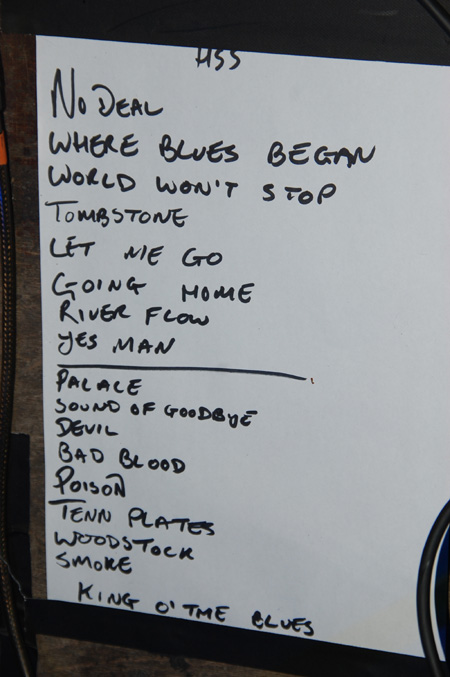 HSS
NO DEAL
WHERE BLUES BEGAN
WORLD WON'T STOP
TOMBSTONE
LET ME GO
GOING HOME
RIVER FLOW
YES MAN
PALACE
SOUND OF GOODBYE
DEVIL
BAD BLOOD
POISON
TENN PLATES
WOODSTOCK
SMOKE
KING O' THE BLUES